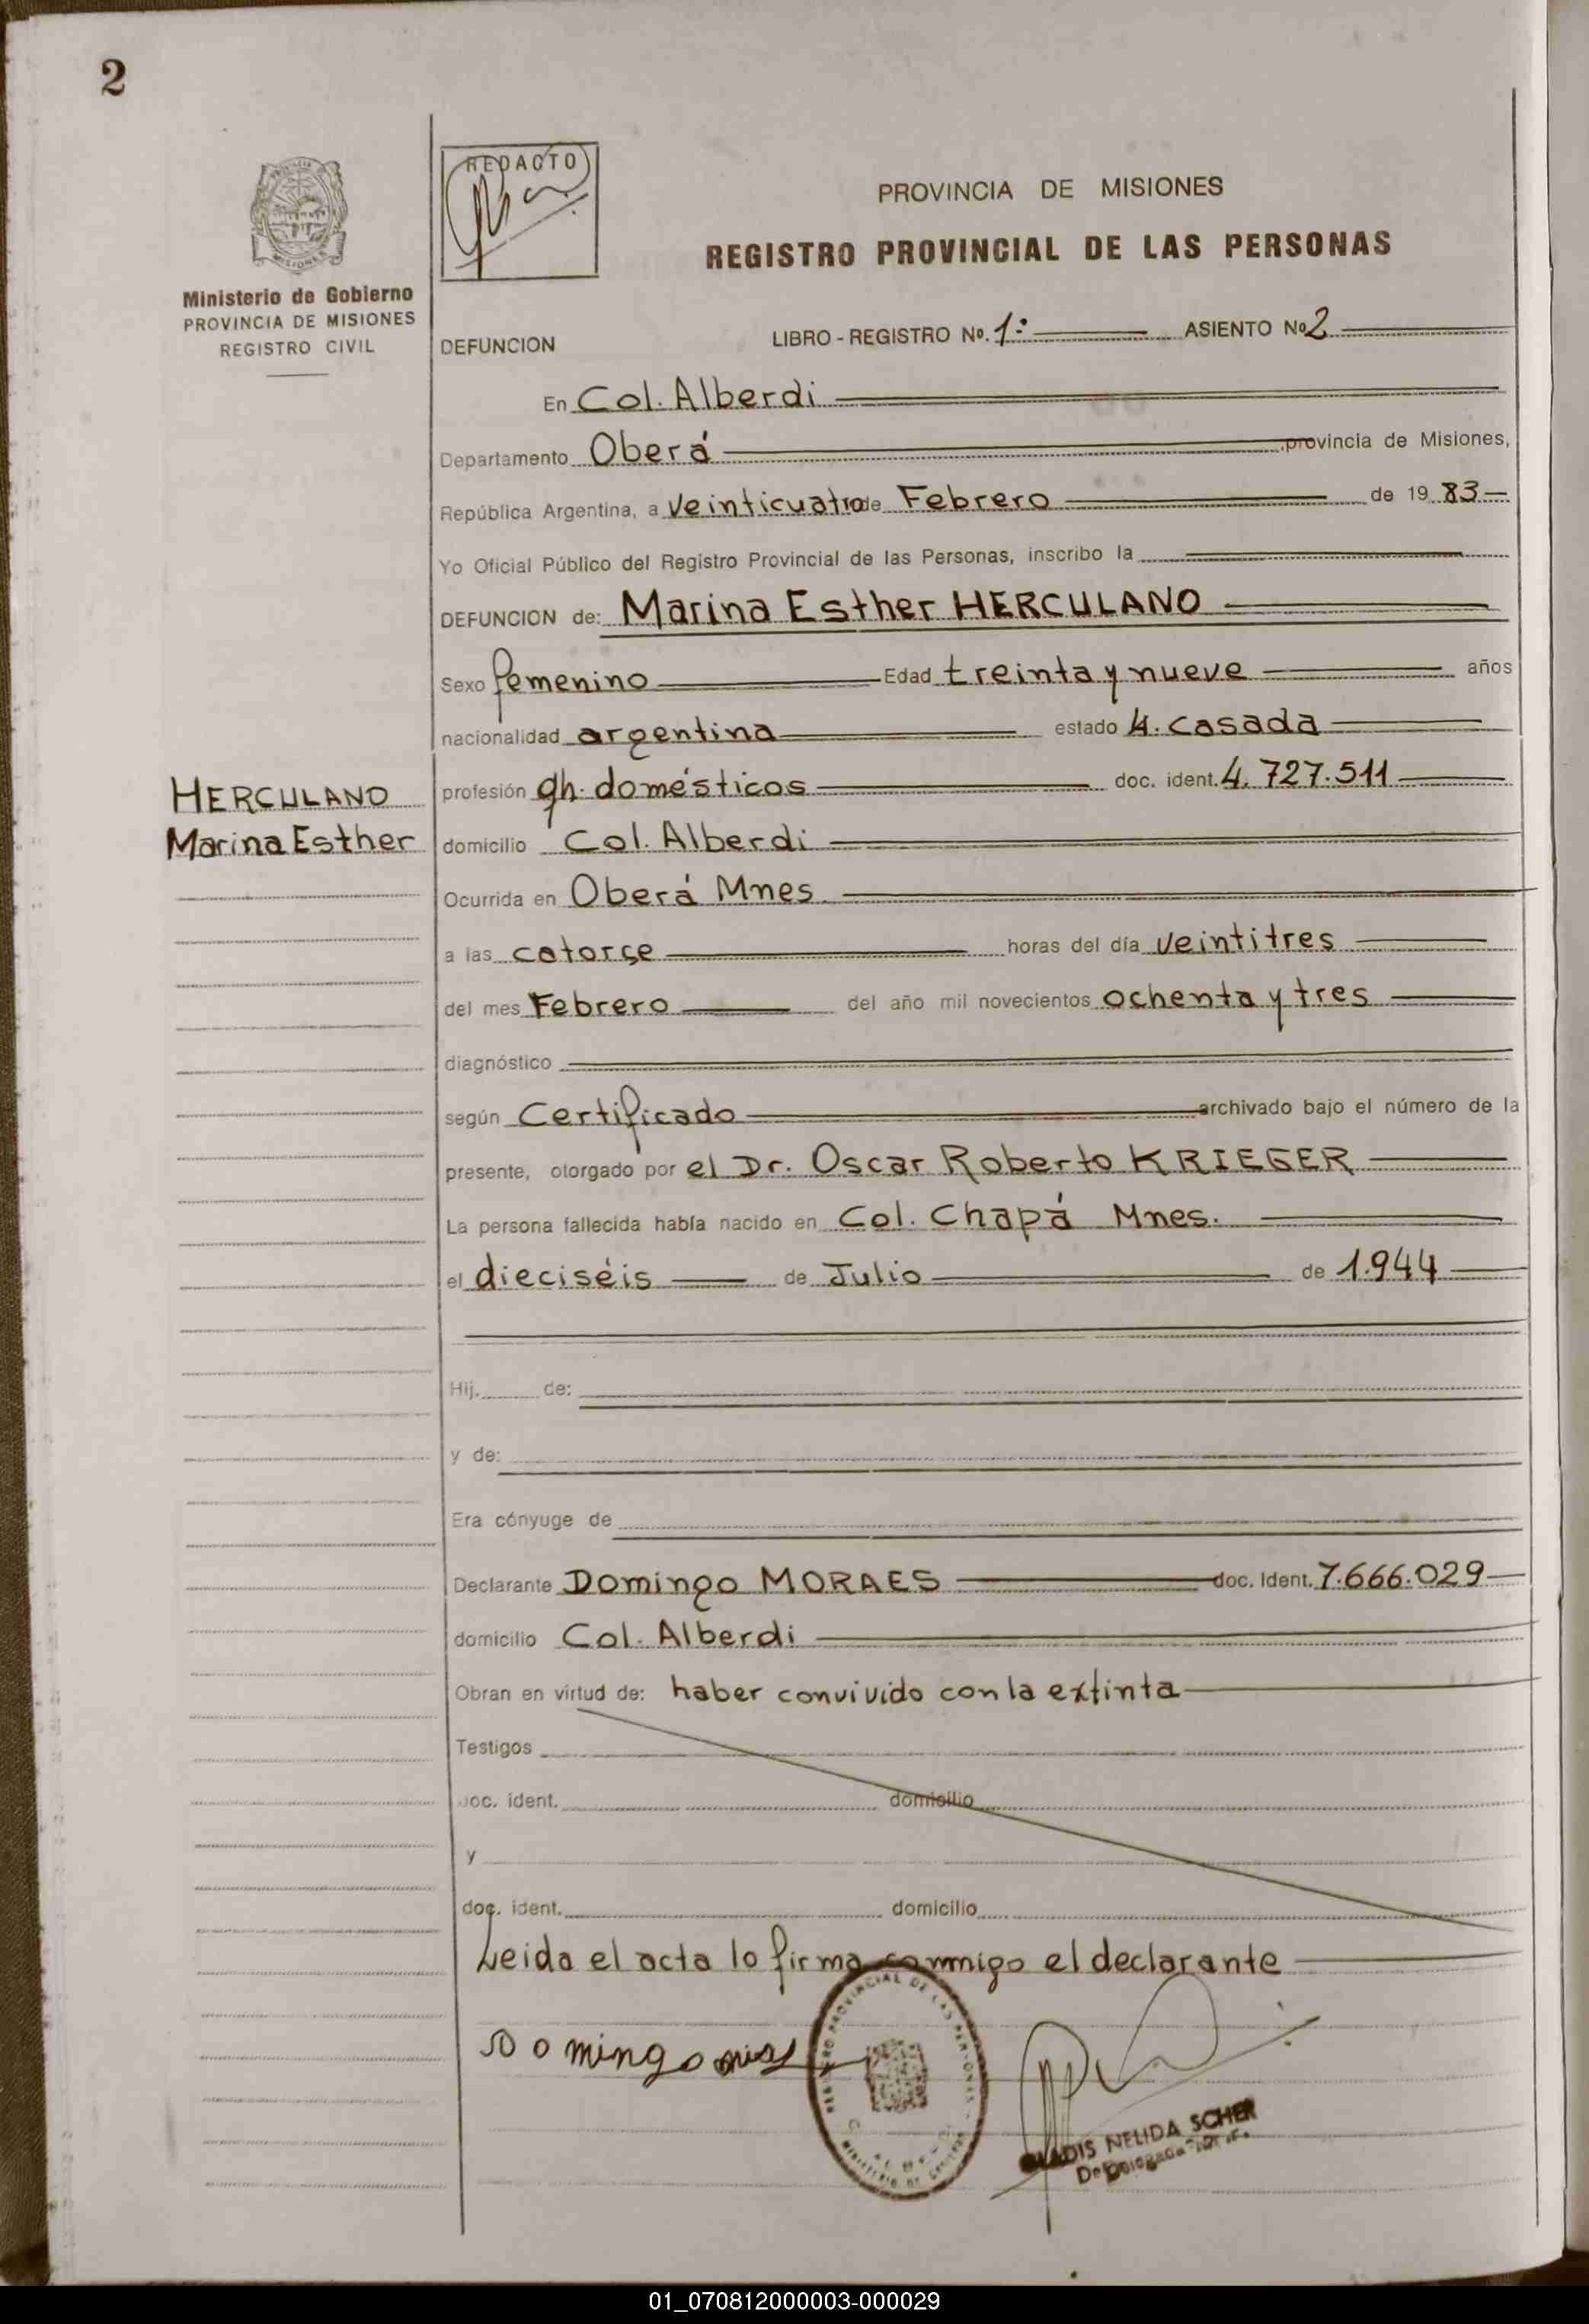 2
REDACTO
PROVINCIA DE MISIONES
REGISTRO PROVINCIAL DE LAS PERSONAS
MISIONES
Ministerio de Gobierno
PROVINCIA DE MISIONES
REGISTRO CIVIL
DEFUNCION LIBRO - REGISTRO Nº. 1º ASIENTO Nº 2
En Col. Alberdi
Departamento Oberá provincia de Misiones,
República Argentina, a veinticuatro de Febrero de 19 83
Yo Oficial Público del Registro Provincial de las Personas, inscribo la
DEFUNCION de: Marina Esther HERCULANO
Sexo femenino Edad treinta y nueve años
nacionalidad argentina estado 4. casada
HERCULANO
Marina Esther
profesión qh. domésticos doc. ident. 4.727.511
domicilio Col. Alberdi
Ocurrida en Oberá Mnes.
a las catorce horas del día veintitres
del mes Febrero del año mil novecientos ochenta y tres
diagnóstico
según Certificado archivado bajo el número de la
presente, otorgado por el Dr. Oscar Roberto KRIEGER
La persona fallecida había nacido en Col. Chapá Mnes.
el dieciséis de Julio de 1.944
Hij. de:
y de:
Era cónyuge de
Declarante Domingo MORAES doc. Ident. 7.666.029
domicilio Col. Alberdi
Obran en virtud de: haber convivido con la extinta
Testigos
doc. ident. domicilio
y
doc. ident. domicilio
Leida el acta lo firma conmigo el declarante
Domingo
REGISTRO PROVINCIAL DE LAS PERSONAS
GLADIS NELIDA SCHER
01_070812000003-000029